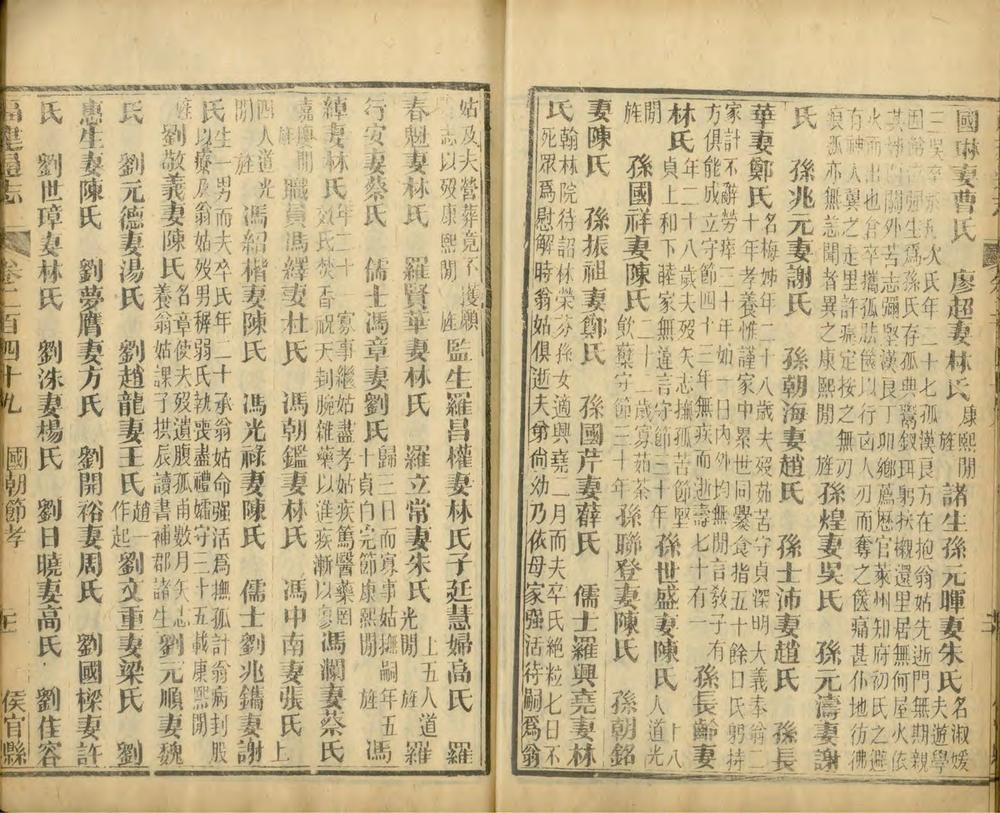 國琳妻曹氏　廖超妻林氏康熙間旌諸生孫元暉妻朱氏名淑媛夫遊學
三吳卒氏年二十七孤漢良方在抱翁姑先逝門無期親
氏存孤典鬻釵珥躬扶櫬還里居無何屋火依
關外苦志彌堅漢良丁卯鄉薦歷官萊州知府初氏之避
火而出也倉卒攜孤挾篋以行凶人刃而奪之篋痛甚仆地彷彿
有神人翼之走里許驚定按之無刃
痕孤亦無恙聞者異之康熙間旌孫煌妻吳氏　孫元濤妻謝
氏　孫兆元妻謝氏　孫朝海妻趙氏　孫士沛妻趙氏　孫長
華妻鄭氏名梅姊年二十八歲夫歿茹苦守貞深明大義奉翁二
十年孝養惟謹家中累世同爨食指五十餘口氏躬持
家計不辭勞瘁三十年如一日內外均無閒言敎子有
方俱能成立守節四十三年無疾而逝壽七十有一孫長齡妻
林氏年二十八歲夫歿矢志撫孤苦節堅
貞上和下睦家無違言守節三十年孫世盛妻陳氏十八人道光
間旌孫國祥妻陳氏年二十二歲寡茹荼飲蘗守節三十年孫聯登妻陳氏　孫朝銘
妻陳氏　孫振祖妻鄭氏　孫國芹妻薛氏　儒士羅興堯妻林
氏翰林院待詔林榮芬孫女適興堯二月而夫卒氏絶粒七日不
死眾爲慰解時翁姑俱逝夫弟尙幼乃依母家強活待嗣爲翁
姑及夫營葬竟不護願
志以歿康熙間旌監生羅昌權妻林氏子廷慧婦高氏　羅
春魁妻林氏　羅賢華妻林氏　羅立常妻朱氏上五人道光間旌羅
行安妻蔡氏　儒士馮章妻劉氏歸三日而寡事姑撫嗣年五十貞白完節康熙間旌馮
繂妻林氏年二十一寡事繼姑盡孝姑疾篤醫藥罔
效氏焚香祝天刲腕雜藥以進疾漸以瘳馮瀾妻蔡氏
嘉慶間旌職員馮繹妻杜氏　馮朝鑑妻林氏　馮中南妻張氏上
四人道光間旌馮紹楷妻陳氏　馮光祿妻陳氏　儒士劉兆鑴妻謝
氏生一男而夫卒氏年二十承翁姑命强活爲撫孤計翁病刲股
以療及翁姑歿男穉弱氏執喪盡禮孀守三十五載康熙間
旌劉故義妻陳氏名章使夫歿遺腹孤甫數月矢志
養翁姑課子拱辰讀書補郡諸生劉元順妻魏
氏　劉元德妻湯氏　劉趙龍妻王氏趙一作起劉文重妻梁氏　劉
惠生妻陳氏　劉夢膺妻方氏　劉開裕妻周氏　劉國樑妻許
氏　劉世璋妻林氏　劉洙妻楊氏　劉日曉妻高氏　劉佳容
福建通志　卷二百四十九　國朝節孝　侯官縣